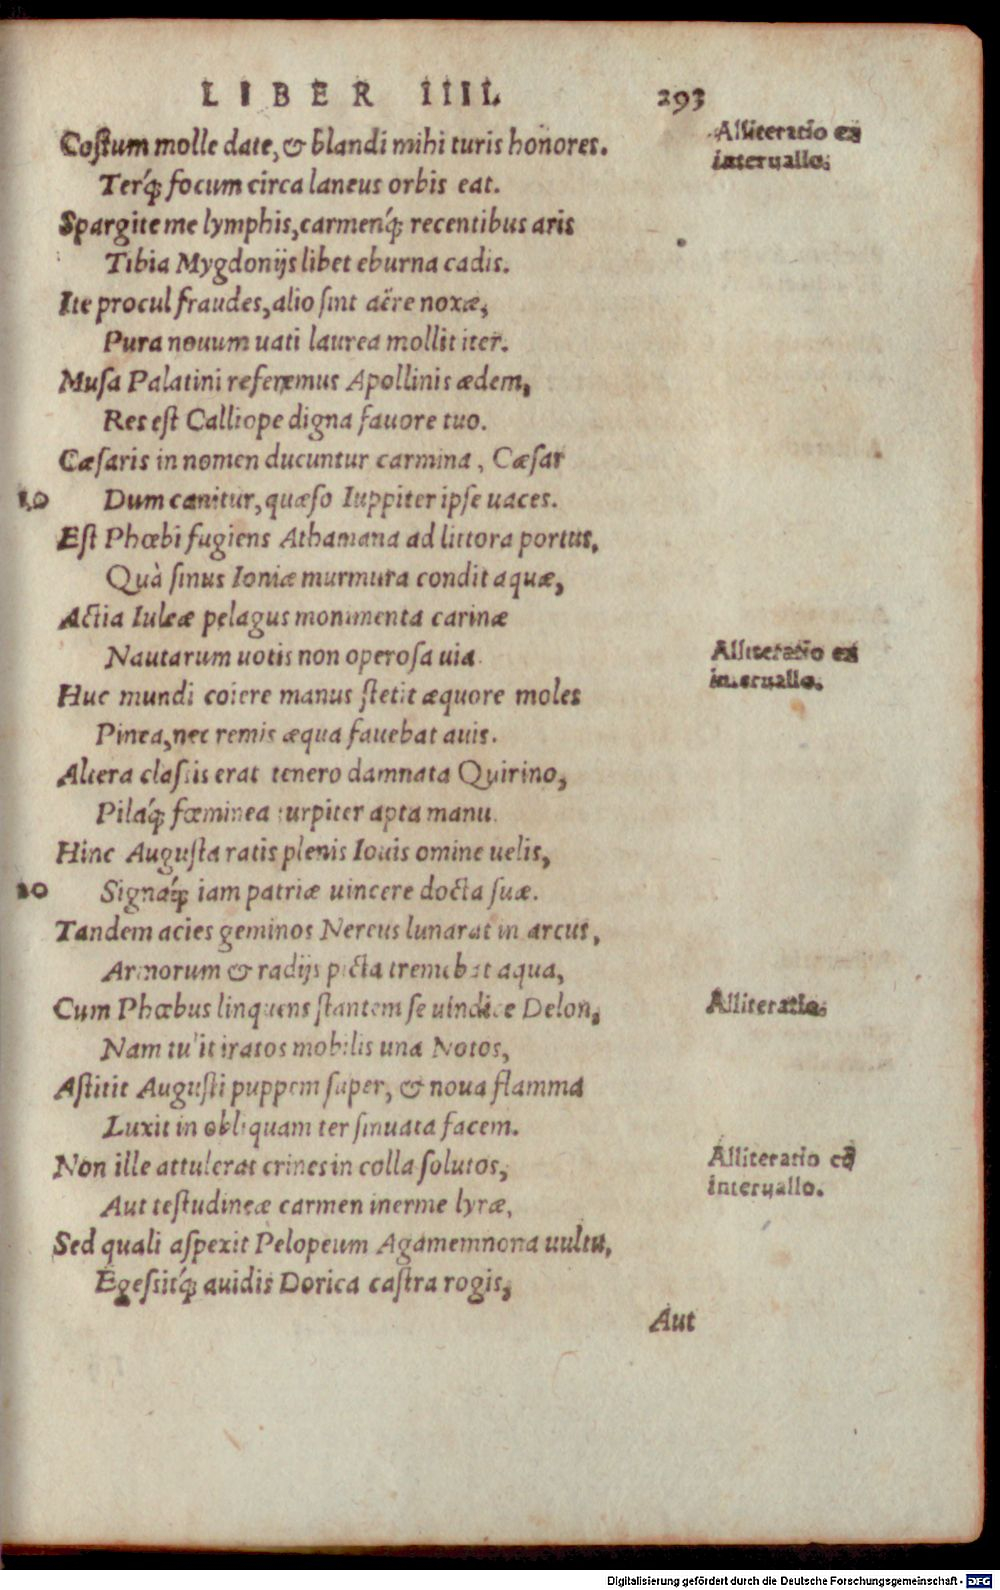 LIBER IIII. 293
Costum molle date, & blandi mihi turis honores.
Alliteratio ex
interuallo.
Terq́; focum circa laneus orbis eat.
Spargite me lymphis, carmenq́; recentibus aris
Tibia Mygdonijs libet eburna cadis.
Ite procul fraudes, alio sint aëre noxæ,
Pura nouum uati laurea mollit iter.
Musa Palatini referemus Apollinis ædem,
Res est Calliope digna fauore tuo.
Cæsaris in nomen ducuntur carmina, Cæsar
10 Dum canitur, quæso Iuppiter ipse uaces.
Est Phœbi fugiens Athamana ad littora portus,
Quà sinus Ioniæ murmura condit aquæ,
Actia Iuleæ pelagus monimenta carinæ
Nautarum uotis non operosa uia.
Alliteratio ex
interuallo.
Huc mundi coiere manus stetit æquore moles
Pinea, nec remis æqua fauebat auis.
Altera classis erat tenero damnata Quirino,
Pilaq́; fœminea turpiter apta manu.
Hinc Augusta ratis plenis Iouis omine uelis,
20 Signaq́; iam patriæ uincere docta suæ.
Tandem acies geminos Nereus lunarat in arcus,
Armorum & radijs picta tremebat aqua,
Cum Phœbus linquens stantem se uindice Delon,
Alliteratio.
Nam tulit iratos mobilis una Notos,
Astitit Augusti puppem super, & noua flamma
Luxit in obliquam ter sinuata facem.
Non ille attulerat crines in colla solutos,
Alliteratio eõ
interuallo.
Aut testudineæ carmen inerme lyræ,
Sed quali aspexit Pelopeum Agamemnona uultu,
Egessitq́; auidis Dorica castra rogis,
Aut
Digitalisierung gefördert durch die Deutsche Forschungsgemeinschaft - DFG